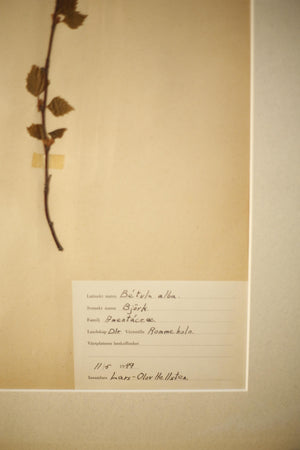 Latinskt namn Bétula alba.
Svenskt namn Björk.
Familj Amentáceae
Landskap Dlr. Växtställe Rommeholn.
Växtplatsens beskaffenhet
11/5 1929
Insamlare Lars-Olov Hellsten.